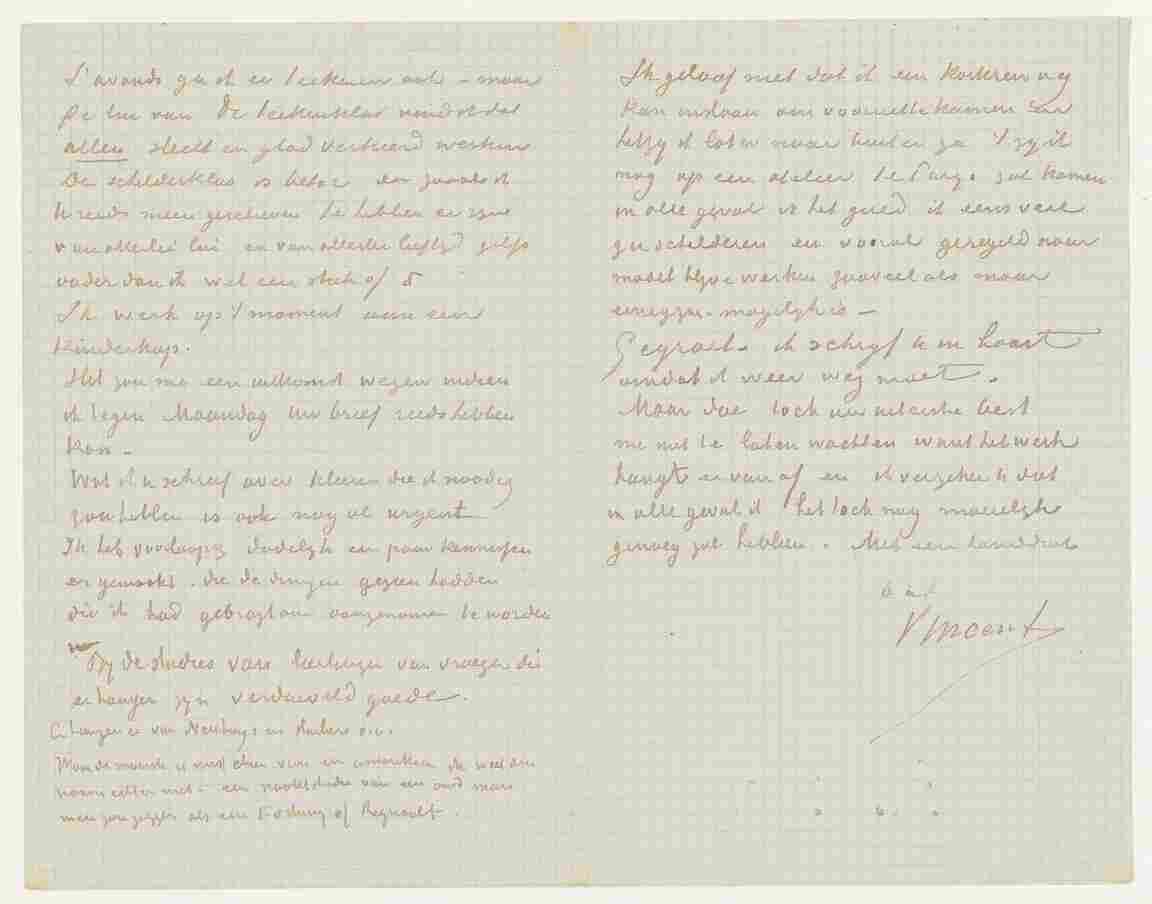 's avonds ga ik er teekenen ook – maar
de lui van de teekenklas vind ik dat
allen slecht en glad verkeerd werken
De schilderklas is beter en zooals ik
U reeds meen geschreven te hebben er zijn
van allerlei lui en van allerlei leeftijd zelfs
ouder dan ik wel een stuk of 5
Ik werk op 't moment aan een
kinderkop.
Het zou me een uitkomst wezen indien
ik tegen Maandag uw brief reeds hebben
kon –
Wat ik U schreef over kleeren die ik noodig
zou hebben is ook nog al urgent
Ik heb voorloopig dadelijk een paar kennissen
er gemaakt. die de dingen gezien hadden
die ik had gebragt om aangenomen te worden
Bij de studies van leerlingen van vroeger die
er hangen zijn verduiveld goede.
Er hangen er van Neuhuys en
Maar de mooiste is
naam echter niet – een naaktstudie van een oud man
men zou zeggen als een Fortuny of Regnault.
Ik geloof niet dat ik een korteren weg
kan inslaan om vooruittekomen en
hetzij ik later naar buiten ga 't zij ik
nog op een atelier te Parijs zal komen
in alle geval is het goed ik eens veel
zie schilderen en vooral geregeld naar
model blijve werken zooveel als maar
eenigzins mogelijk is –
Gegroet. ik schrijf U in haast
omdat ik weer weg moet.
Maar doe toch uw uiterste best
me niet te laten wachten want het werk
hangt er van af en ik verzeker U dat
in alle geval ik het toch nog moeielijk
genoeg zal hebben. Met een handdruk
t. à t.
Vincent